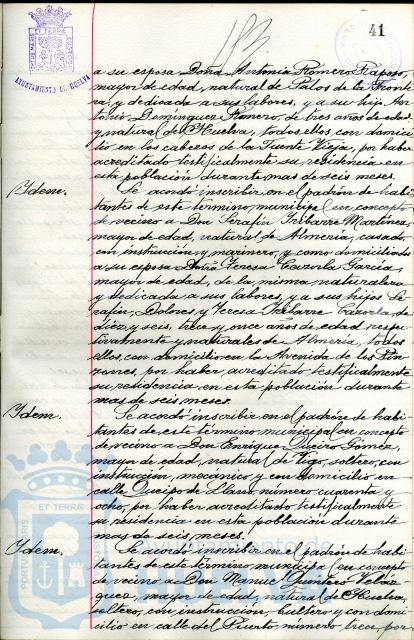 41
AYUNTAMIENTO DE HUELVA
a su esposa Doña Antonia Romero Raposo,
mayor de edad, natural de Palos de la Fronte
ra, y dedicada a sus labores, y a su hijo An
tonio Dominguez Romero, de tres años de edad
y natural de Huelva, todos ellos con domici
lio en los cabezos de la Fuente Vieja, por haber
acreditado testificalmente su residencia en
esta población durante mas de seis meses.
Idem. Se acordó inscribir en el padrón de habi
tantes de este término municipal en concepto
de vecino a Don Serafin Iribarre Martinez,
mayor de edad, natural de Almeria, casado,
con instrucción y marinero, y como domiciliados
a su esposa Doña Teresa Cazorla Garcia,
mayor de edad, de la misma naturaleza
y dedicada a sus labores, y a sus hijos Se
rafin, Dolores y Teresa Iribarre Cazorla, de
diez y seis, trece y once años de edad respec
tivamente y naturales de Almeria, todos
ellos con domicilio en la Avenida de los Pin
zones, por haber acreditado testificalmente
su residencia en esta población durante
mas de seis meses.
Idem. Se acordó inscribir en el padrón de habi
tantes de este término municipal en concepto
de vecino a Don Enrique Queiro Gómez,
mayor de edad, natural de Vigo, soltero, con
instrucción, mecánico y con domicilio en
calle Queipo de Llano, número cuarenta y
ocho, por haber acreditado testificalmente
su residencia en esta población durante
mas de seis meses.
Idem. Se acordó inscribir en el padrón de habi
tantes de este término municipal en concepto
de vecino a Don Manuel Quintero Velaz
quez, mayor de edad, natural de Huelva,
soltero, con instrucción, hultero y con domi
cilio en calle del Puerto, número trece, por
ET TERRAE
PORTUS MARIS
Ayuntamiento de